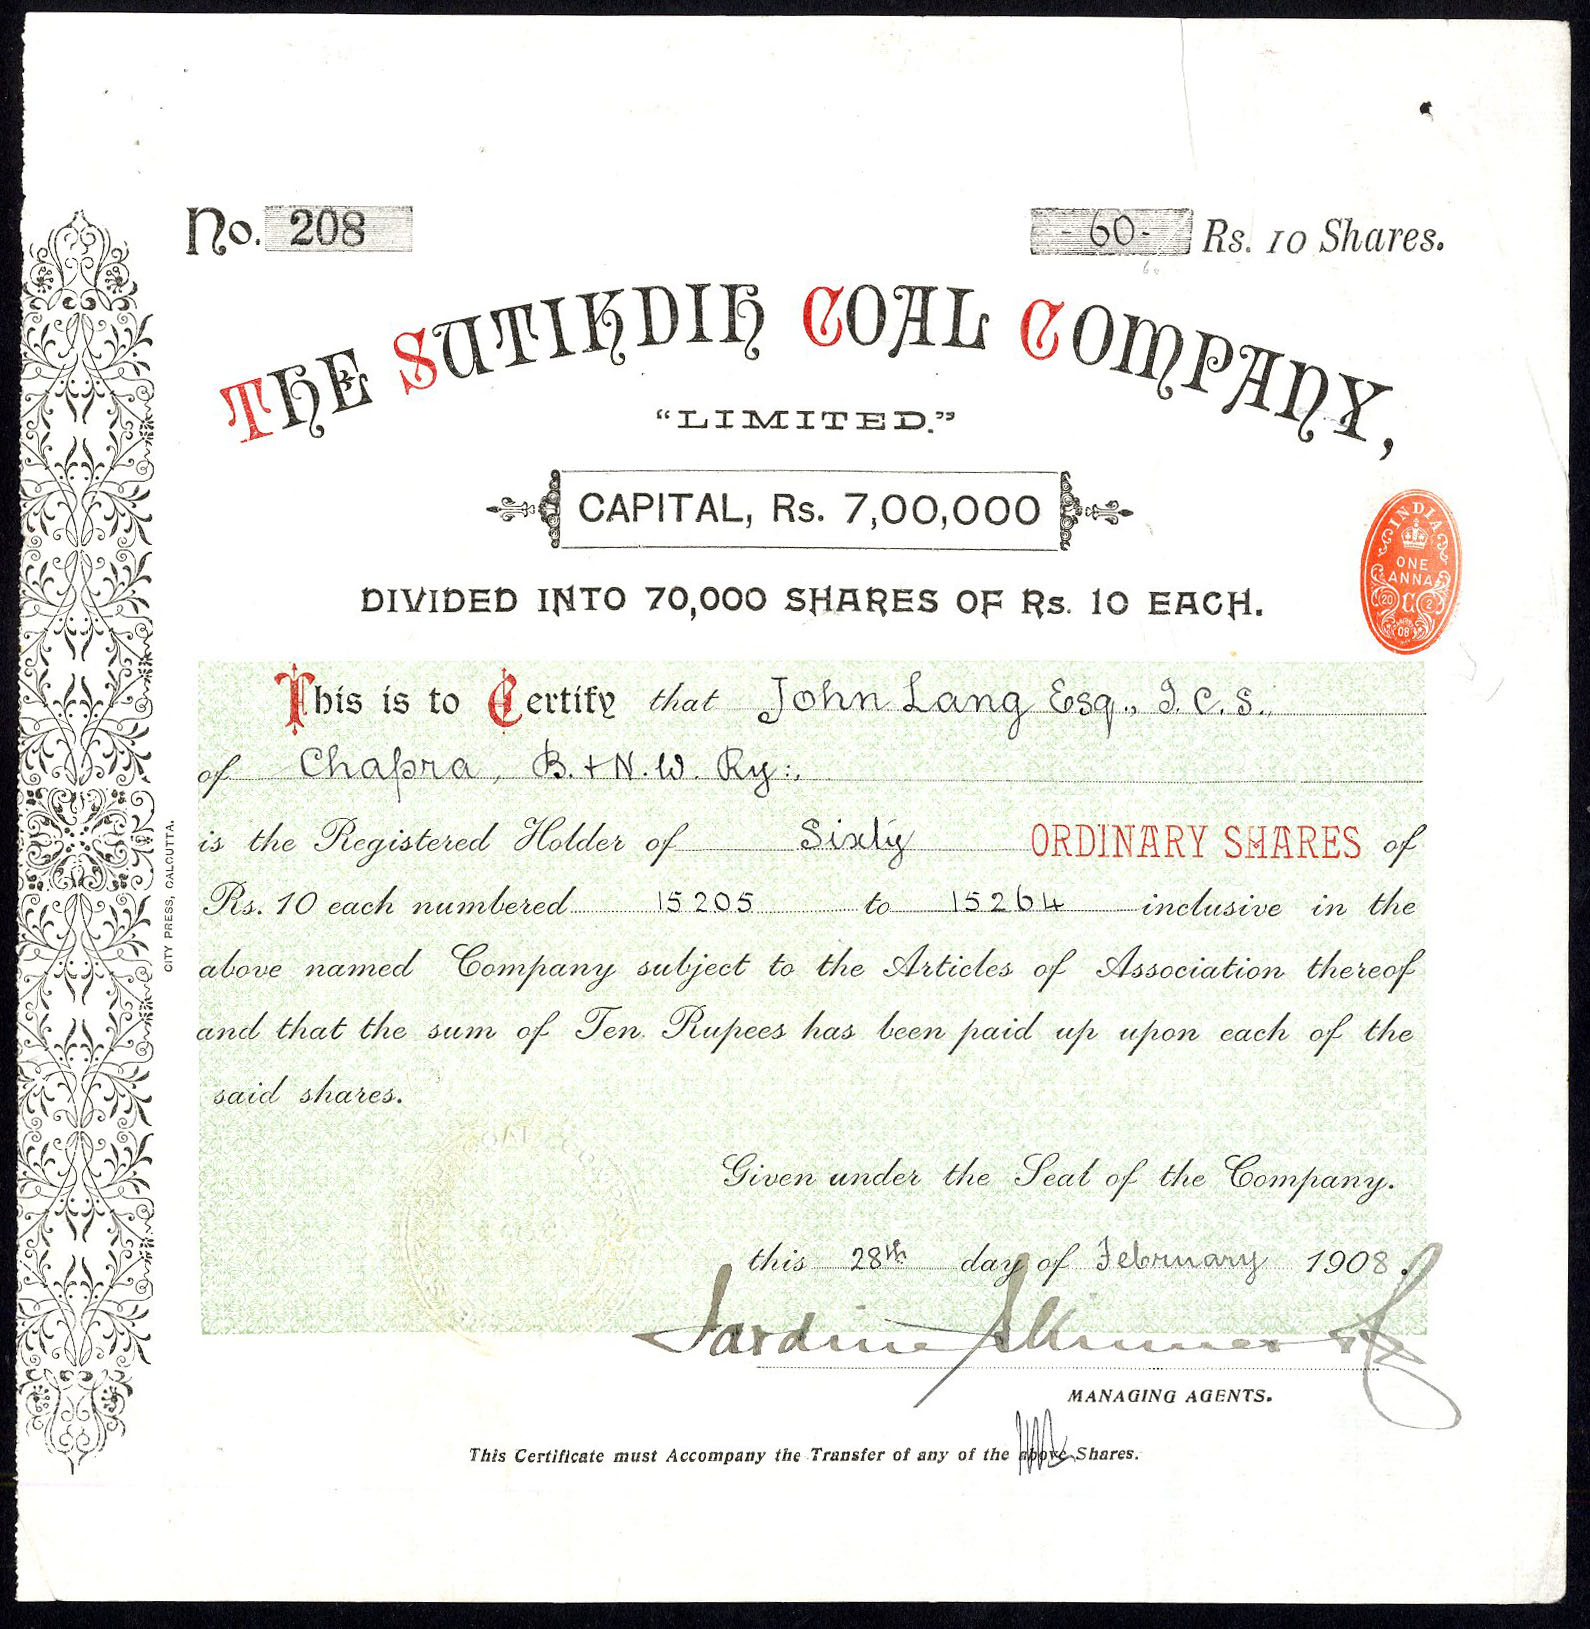 No. 208
- 60 - Rs. 10 Shares.
THE SUTIKDIH COAL COMPANY,
"LIMITED."
CAPITAL, Rs. 7,00,000
DIVIDED INTO 70,000 SHARES OF Rs. 10 EACH.
INDIA
ONE
ANNA
20 C 2
08
This is to Certify that John Lang Esq., I.C.S.,
of Chapra, B. & N. W. Ry:,
is the Registered Holder of Sixty ORDINARY SHARES of
Rs. 10 each numbered 15205 to 15264 inclusive in the
above named Company subject to the Articles of Association thereof
and that the sum of Ten Rupees has been paid up upon each of the
said shares.
Given under the Seal of the Company.
this 28th day of February 1908.
Jardine Skinner & Co
MANAGING AGENTS.
This Certificate must Accompany the Transfer of any of the above Shares.
CITY PRESS, CALCUTTA.